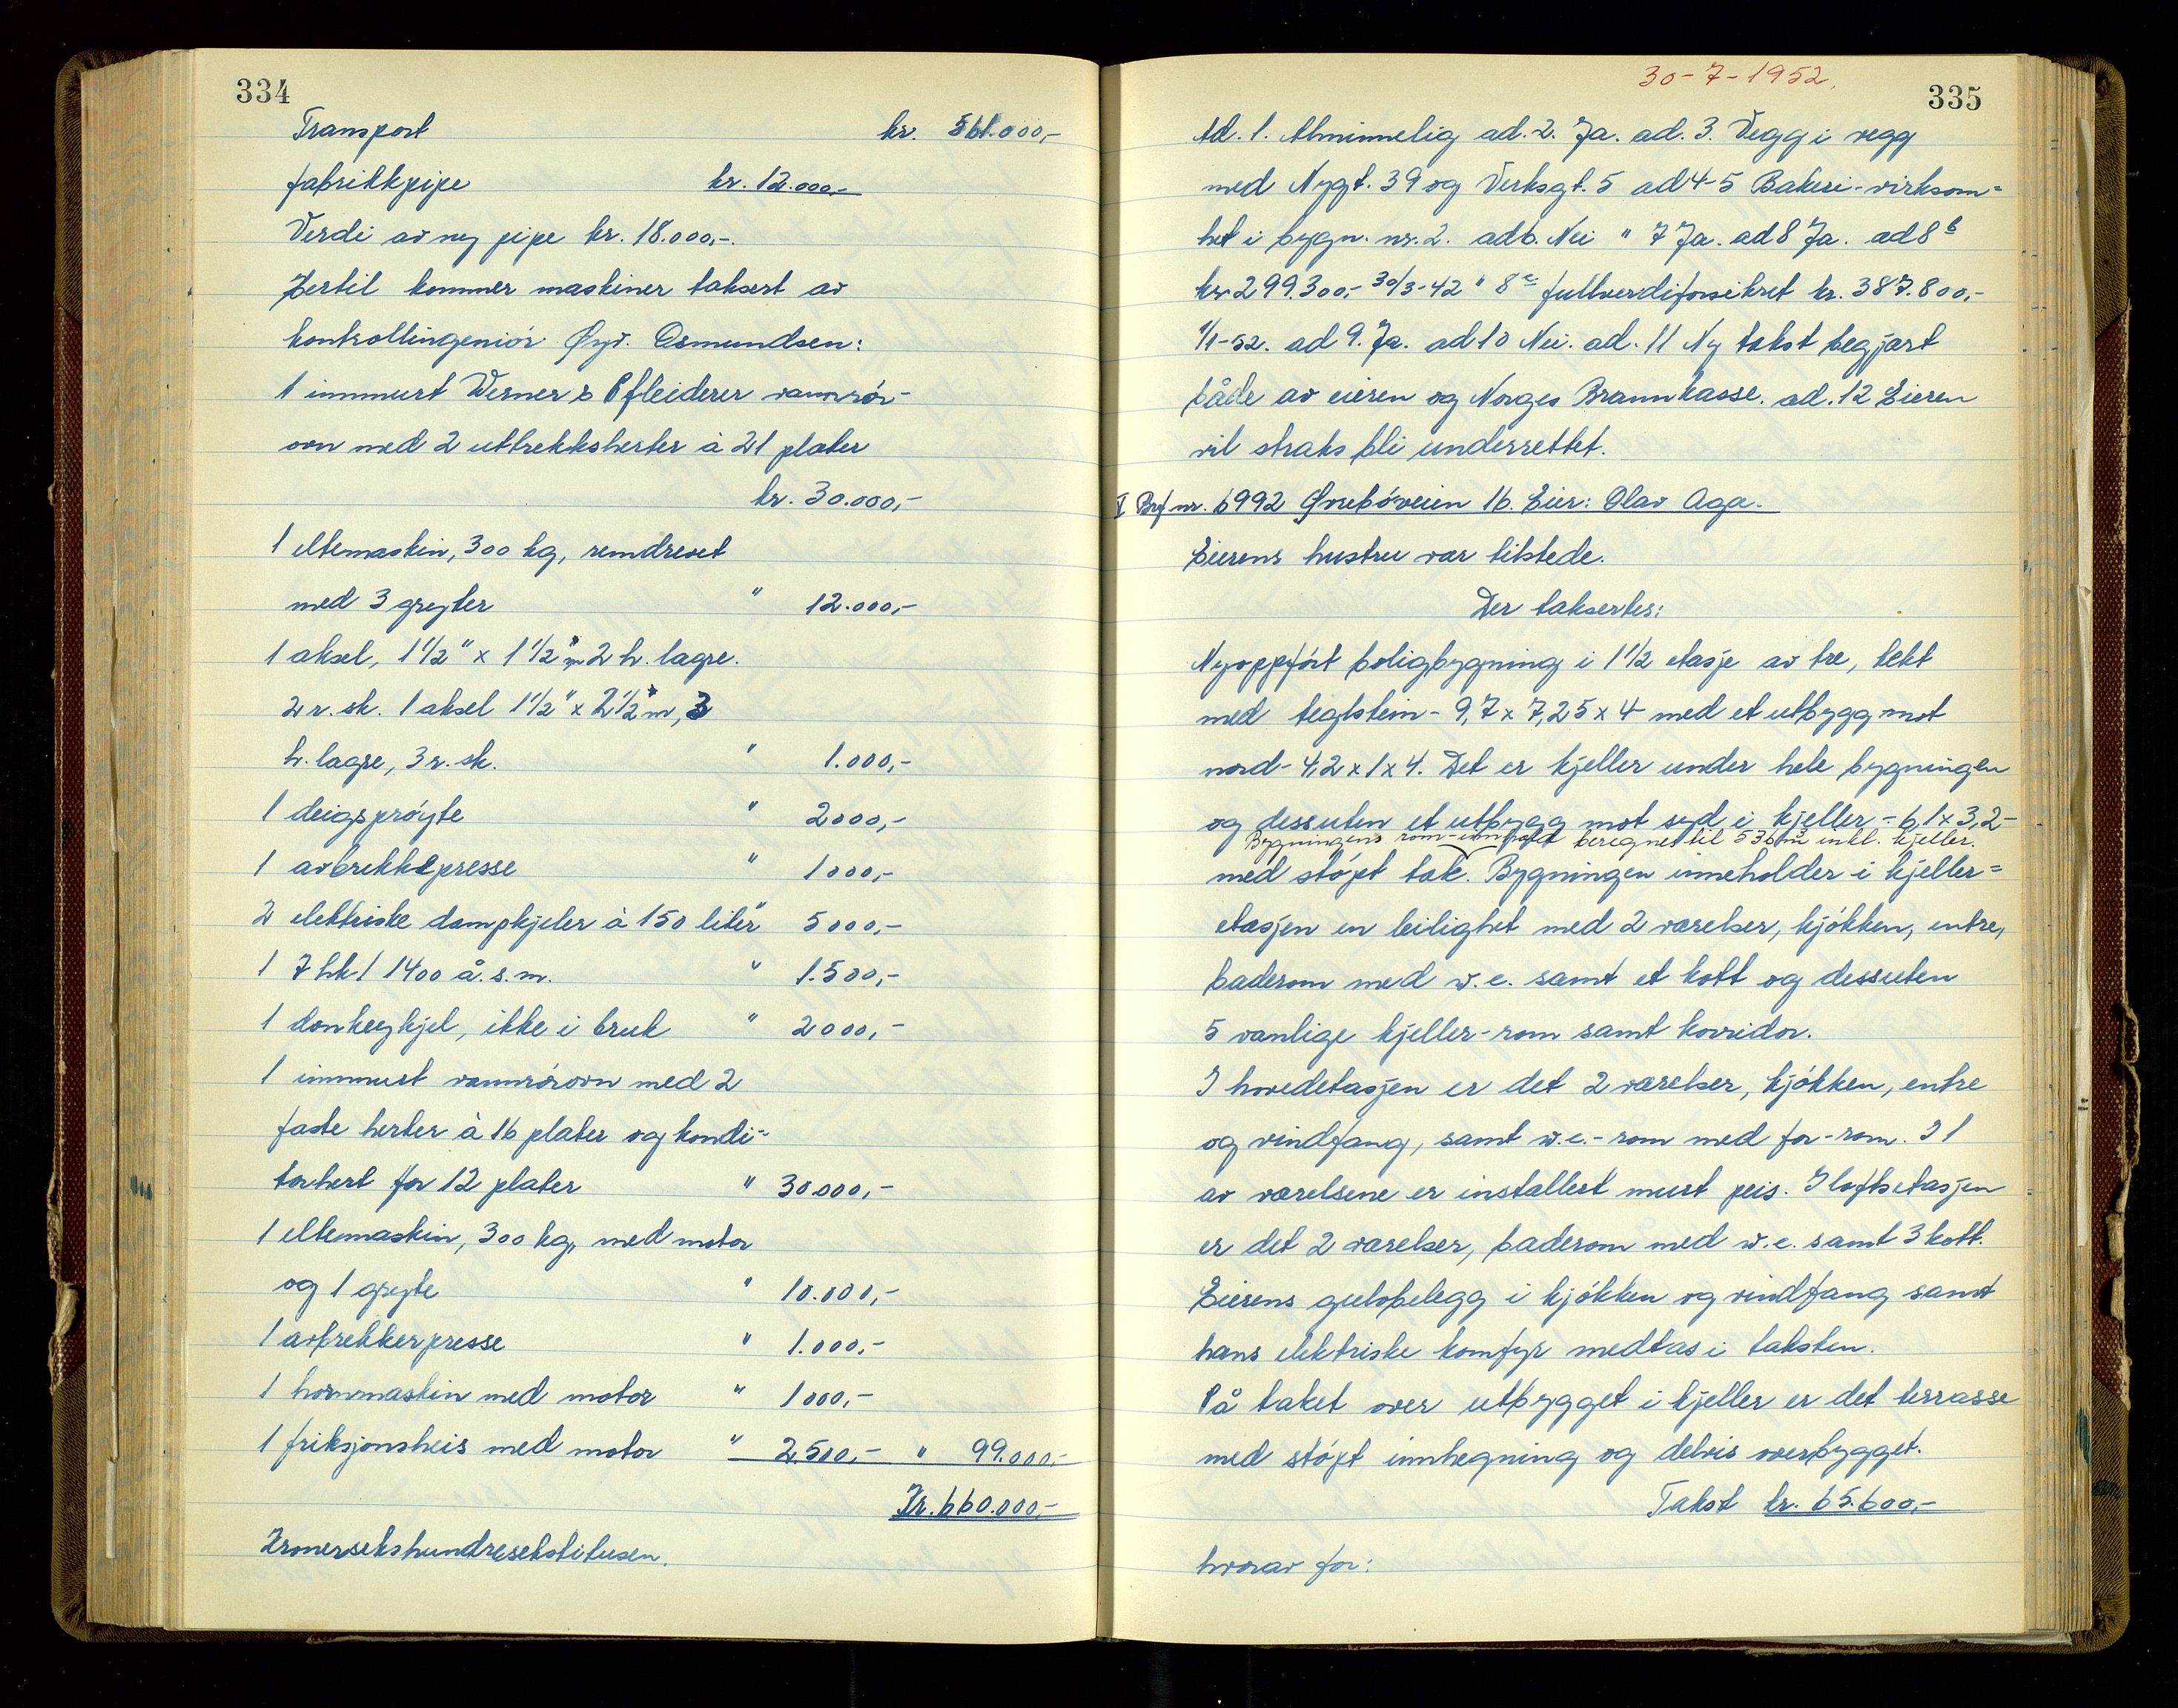 334
Transport kr. 561.000,-
fabrikkpipe kr. 12.000,-
Verdi av ny pipe kr. 18.000,-.
Hertil kommer maskiner taksert av
kontrollingeniör Øyv. Osmundsen:
1 innmurt Werner & Pfleiderer vannrör-
ovn med 2 uttrekksherter à 21 plater
kr. 30.000,-
1 eltemaskin, 300 kg, remdrevet
med 3 gryter " 12.000,-
1 aksel, 1 1/2" x 1 1/2 m 2 h. lagre.
2 r. sk. 1 aksel 1 1/2" x 2 1/2 m, 3
h. lagre, 3 r. sk. " 1.000,-
1 deigspröyte " 2000,-
1 avbrekkepresse " 1000,-
2 elektriske dampkjeler à 150 liter " 5000,-
1 7 hk / 1400 å.s.m. " 1.500,-
1 donkeykjel, ikke i bruk " 2000,-
1 innmurt vannrörovn med 2
faste herter à 16 plater og kondi-
torhert for 12 plater " 30.000,-
1 eltemaskin, 300 kg, med motor
og 1 gryte " 10.000,-
1 avbrekkerpresse " 1.000,-
1 hornmaskin med motor " 1000,-
1 friksjonsheis med motor " 2.500,- " 99.000,-
Kr. 660.000,-
Kronersekshundresekstitusen.
30-7-1952.
335
Ad. 1. Alminnelig ad. 2. Ja. ad. 3. Vegg i vegg
med Nygt. 39 og Verksgt. 5 ad 4-5 Bakeri-virksom=
het i bygn. nr. 2. ad 6. Nei " 7 Ja. ad 8 Ja. ad 8 b
kr 299.300,- 30/3-42 " 8 c fullverdiforsikret kr. 387.800,-
1/1-52. ad 9. Ja. ad 10 Nei. ad. 11 Ny takst begjært
både av eieren og Norges Brannkasse. ad. 12 Eieren
vil straks bli underrettet.
V Brf nr. 6992 Øvreböveien 16. Eier: Olav Aga.
Eierens hustru var tilstede.
Der taksertes:
Nyoppfört boligbygning i 1 1/2 etasje av tre, tekt
med teglstein - 9,7 x 7,25 x 4 med et utbygg mot
nord - 4,2 x 1 x 4. Det er kjeller under hele bygningen
og dessuten et utbygg mot syd i kjeller - 6,1 x 3,2 -
Bygningens rom-innhold beregnet til 536 m3 inkl. kjeller.
med stöpt tak. Bygningen inneholder i kjeller=
etasjen en leilighet med 2 værelser, kjökken, entre,
baderom med w.c. samt et kott og dessuten
5 vanlige kjeller-rom samt korridor.
I hovedetasjen er det 2 værelser, kjökken, entre
og vindfang, samt w.c.-rom med for-rom. I 1
av værelsene er installert murt peis. I loftsetasjen
er det 2 værelser, baderom med w.c. samt 3 kott.
Eierens gulvbelegg i kjökken og vindfang samt
hans elektriske komfyr medtas i taksten.
På taket over utbygget i kjeller er det terrasse
med stöpt innhegning og delvis overbygget.
Takst kr. 65.600,-
hvorav for: